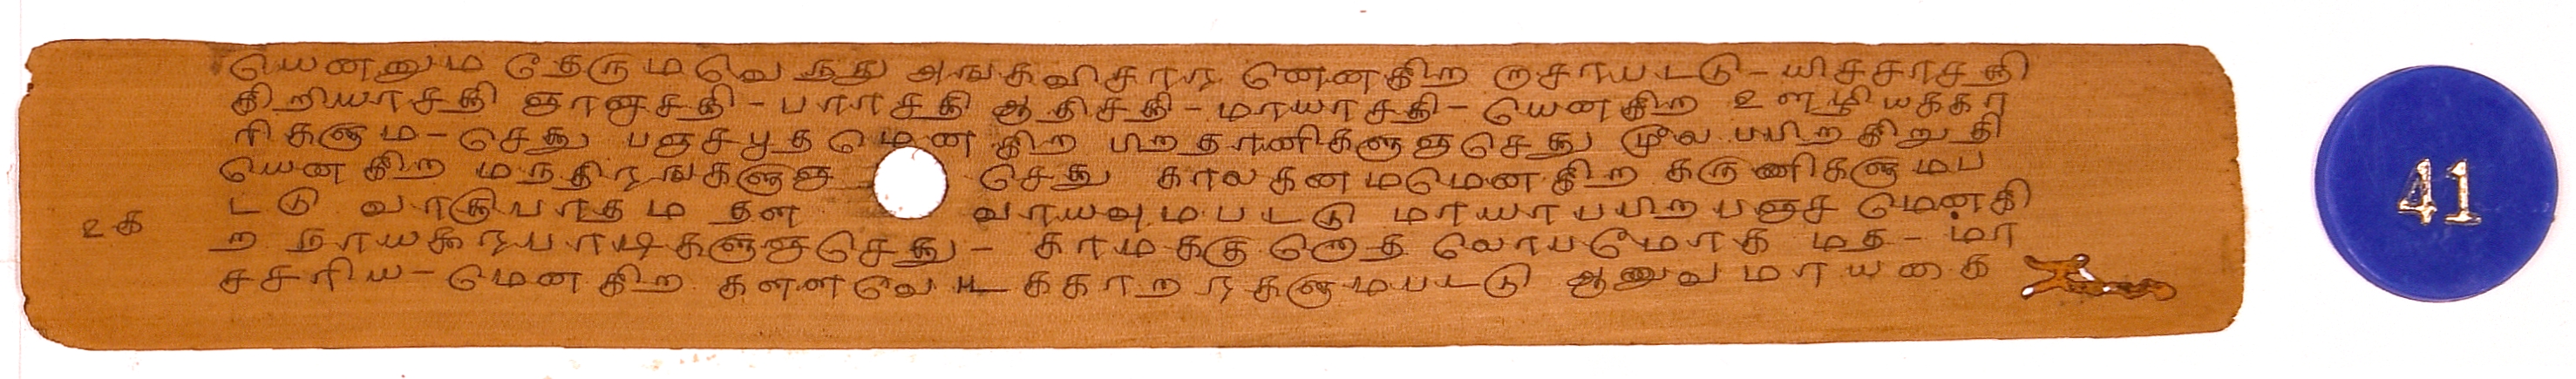 யெனனும தேருமவெநது அஙகவிசாரர னெனகிற ராசாயபடடு-யிசசாசததி
கிறியாசததி ஞானசததி-பராசததி ஆதிசததி-மாயாசததி-யெனகிற உளழியககா
ரிகளும-செதது பஞசபூதமெனகிற பிறதானிகளுஞசெதது மூல பயிறகிறுதி
யெனகிற மநதிரஙகளுஞ செதது காலகனமமெனகிற கருணிகளுமப
டடு வாககுபாதம தள வாயவுமபடடு மாயாபயிறபஞச மெனகி
ற நாயககரபாடிகளுஞசெதது- காமககுறோத லோபமோக மத-மா
சசரிய-மெனகிற களளவெடககாறரகளுமபடடு ஆணுவமாயகை
உக
41